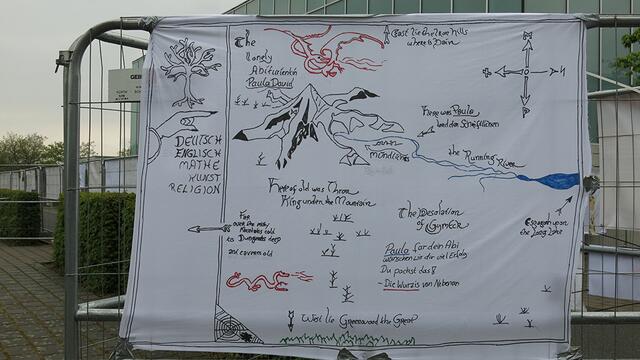 The
lonely
Abiturientin
Paula David
East lie the Iron Hills
where is Dain
DEUTSCH
ENGLISCH
MATHE
KUNST
RELIGION
Here was Paula
the Running River
Here of old was Thror
King under the Mountain
The Desolation
of
Far
over the misty
Mountains cold
to Dungeons deep
and cavern old
Esgaroth upon
the Long Lake
Paula für dein Abi
wünschen wir dir viel Erfolg
Du packst das!!
- Die Wurzis von Nebenan
West lie Greenwood the Great